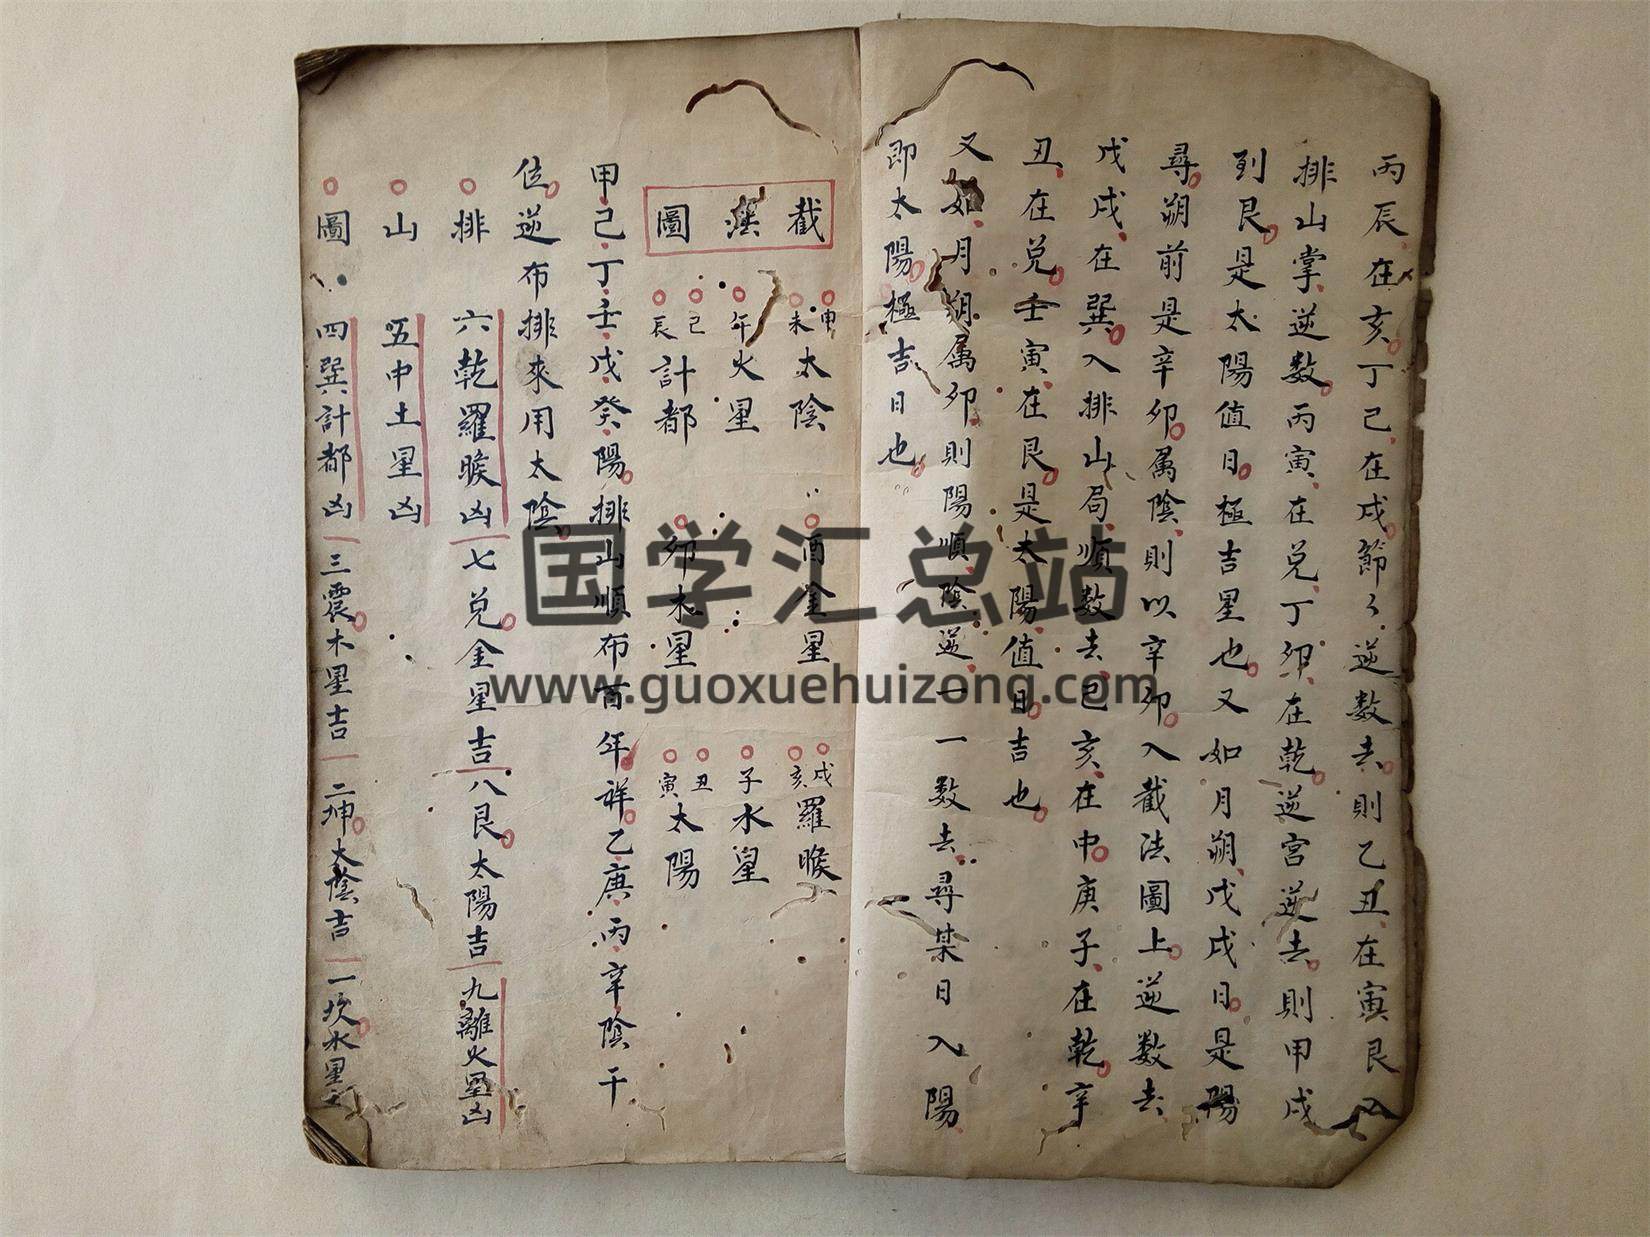 丙辰在亥丁己在戌節々逆数去則乙丑在寅艮入
排山掌逆数丙寅在兑丁卯在乾逆宮逆去則甲戌
到艮是太陽值日極吉星也又如月朔戊戌日是陽
尋朔前是辛卯属陰則以辛卯入截法圖上逆数去
戊戌在巽入排山局順数去己亥在中庚子在乾辛
丑在兑壬寅在艮是太陽值日吉也
又如月朔属卯則陽順陰逆一一数去尋某日入陽
即太陽極吉日也
截法圖
申未太陰 酉金星 戌亥羅睺
午火星 子水星
己辰計都 卯木星 丑寅太陽
甲己丁壬戊癸陽排山順布百年祥乙庚丙辛陰干
位逆布排來用太陰
排 六乾羅睺凶 七兑金星吉 八艮太陽吉 九離火星凶
山 五中土星凶
圖 四巽計都凶 三震木星吉 二坤太陰吉 一坎水星
国学汇总站
www.guoxuehuizong.com